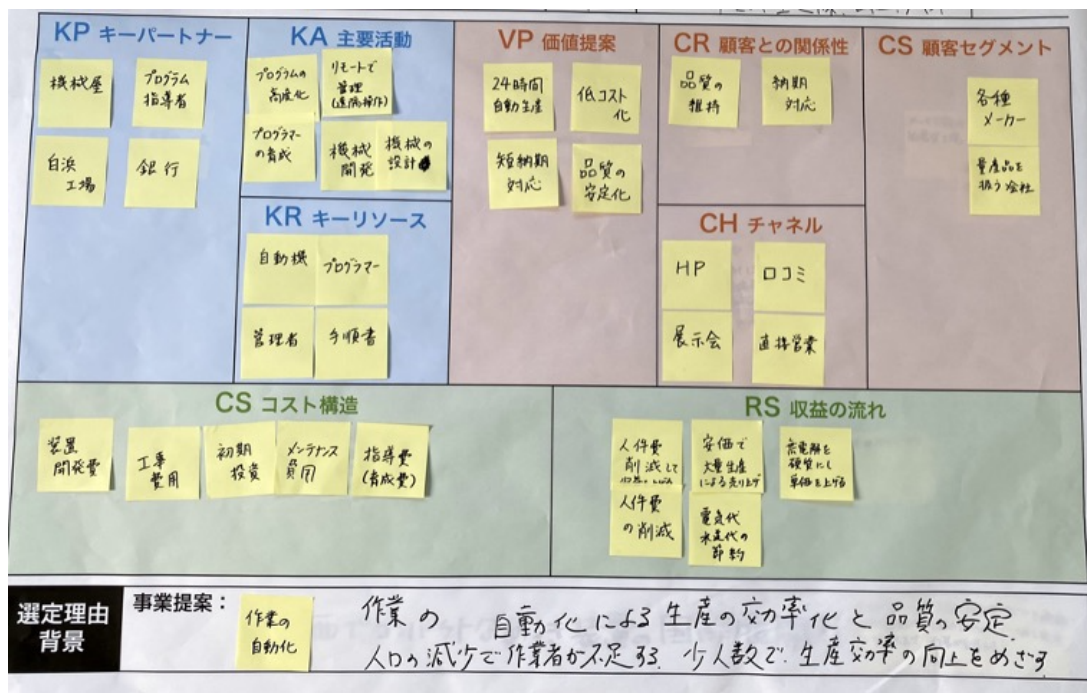 KP キーパートナー
機械屋
プログラム
指導者
自浜
工場
銀行
KA 主要活動
プログラムの
高度化
リモートで
管理
(遠隔操作)
プログラマー
の育成
機械
開発
機械の
設計
KR キーリソース
自動機
プログラマー
管理者
手順書
VP 価値提案
24時間
自動生産
低コスト
化
短納期
対応
品質の
安定化
CR 顧客との関係性
品質の
維持
納期
対応
CH チャネル
HP
口コミ
展示会
直接営業
CS 顧客セグメント
各種
メーカー
量産品を
扱う会社
CS コスト構造
装置
開発費
工事
費用
初期
投資
メンテナンス
費用
指導費
(育成費)
RS 収益の流れ
人件費
削減して
安価で
大量生産
による売り上げ
無電解を
硬質にし
単価を上げる
人件費
の削減
電気代
水道代の
節約
選定理由
背景
事業提案：
作業の
自動化
作業の 自動化による生産の効率化と品質の安定.
人口の減少で作業者が不足する. 少人数で.生産効率の向上をめざす